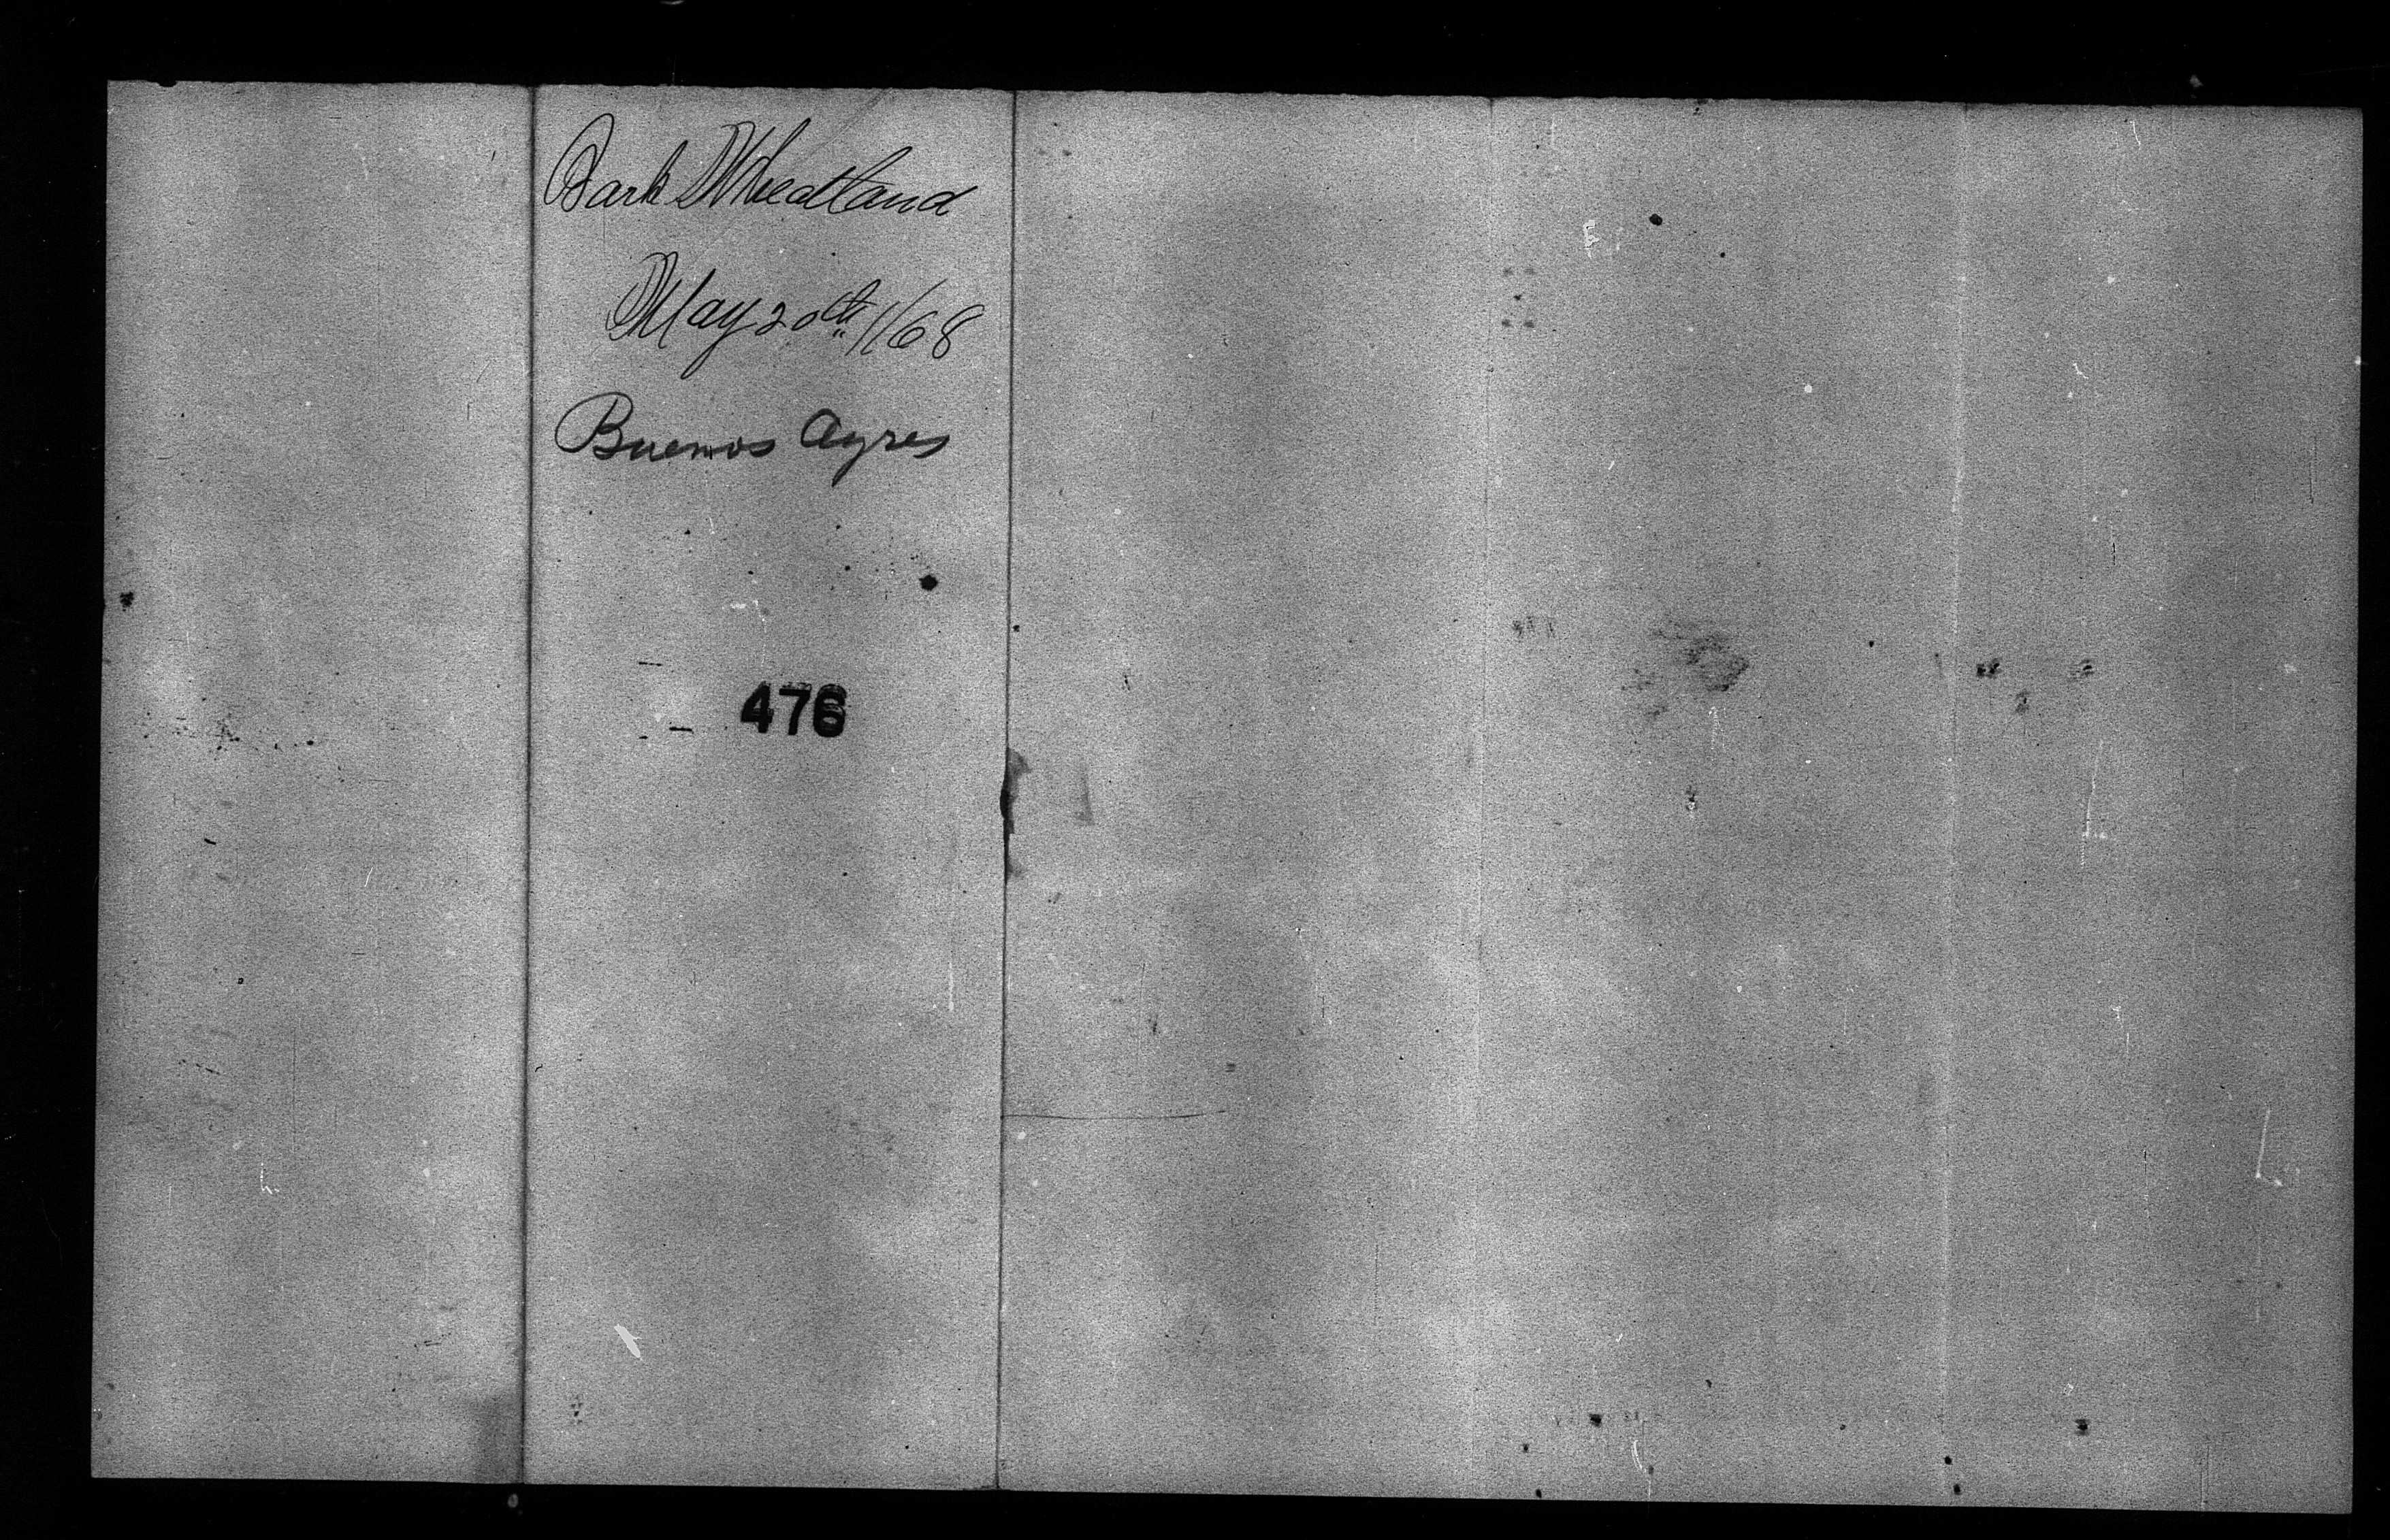 Bark Wheatland
May 20th 1/68
Buenos Ayres
476